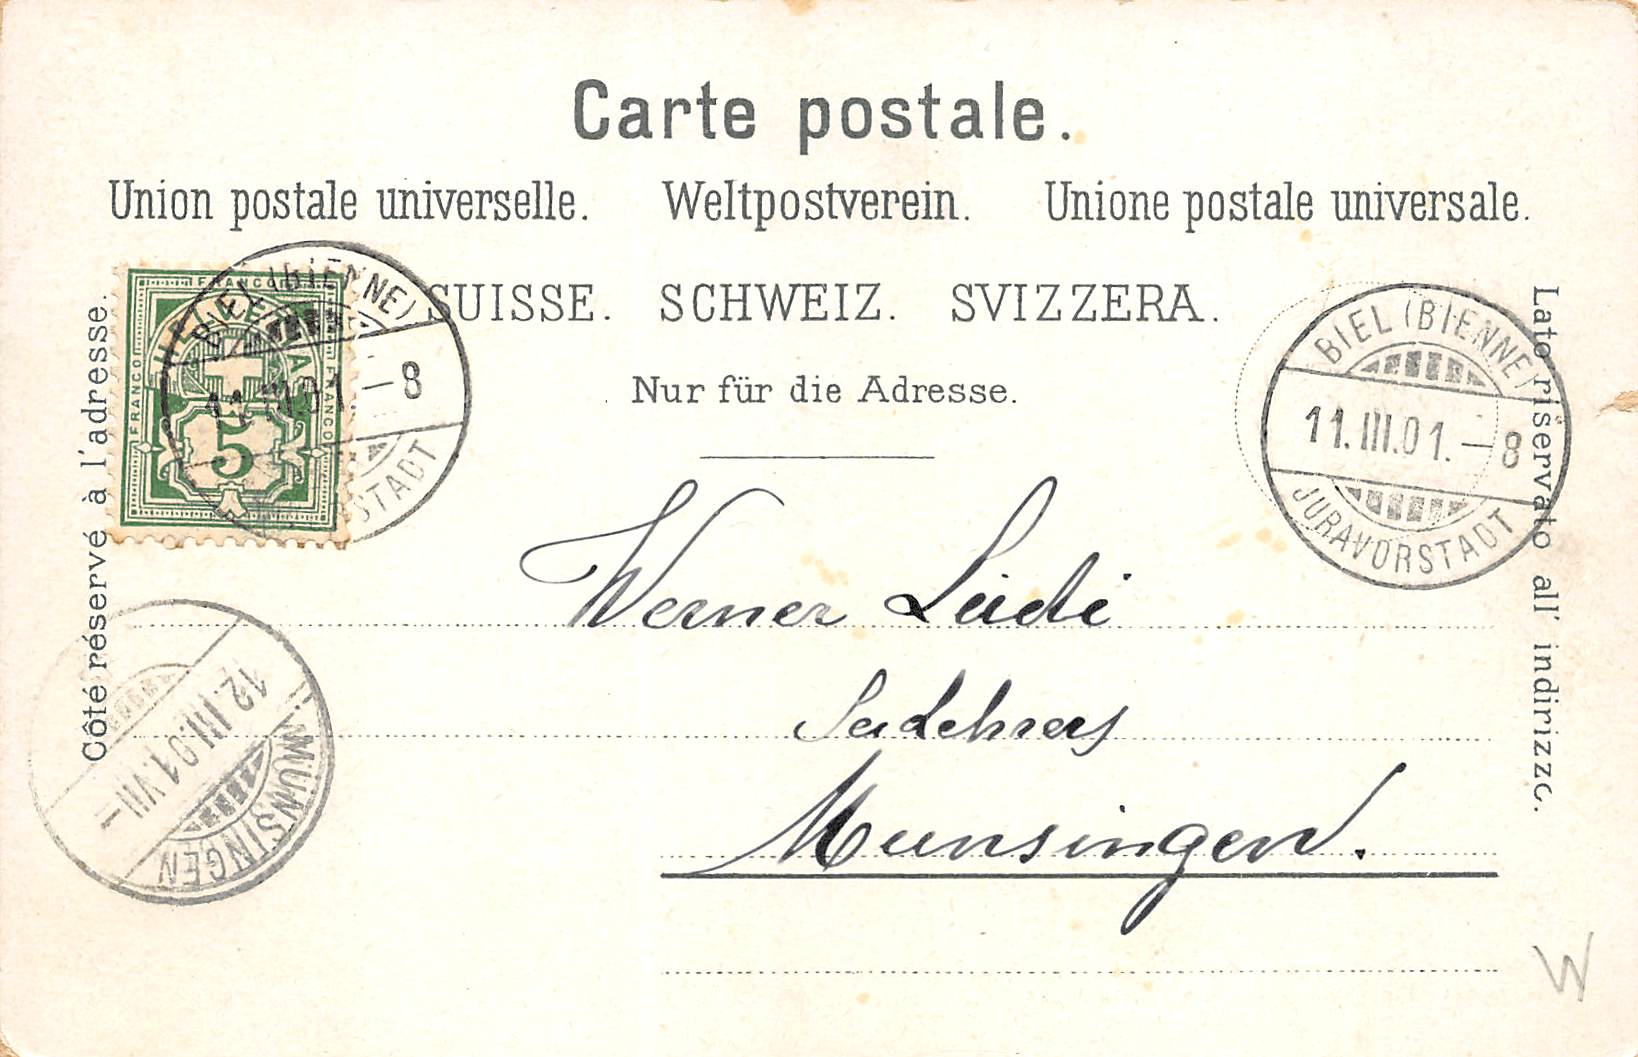 Carte postale.
Union postale universelle. Weltpostverein. Unione postale universale.
SUISSE. SCHWEIZ. SVIZZERA.
Nur für die Adresse.
Côté réservé à l'adresse.
Lato riservato all' indirizzo.
FRANCO
HELVETIA
FRANCO
FRANCO
5
BIEL (BIENNE)
11.III.01.—8
BIEL (BIENNE)
11.III.01.—8
JURAVORSTADT
Werner
Münsingen.
12.III.01.VII—
MÜNSINGEN
W